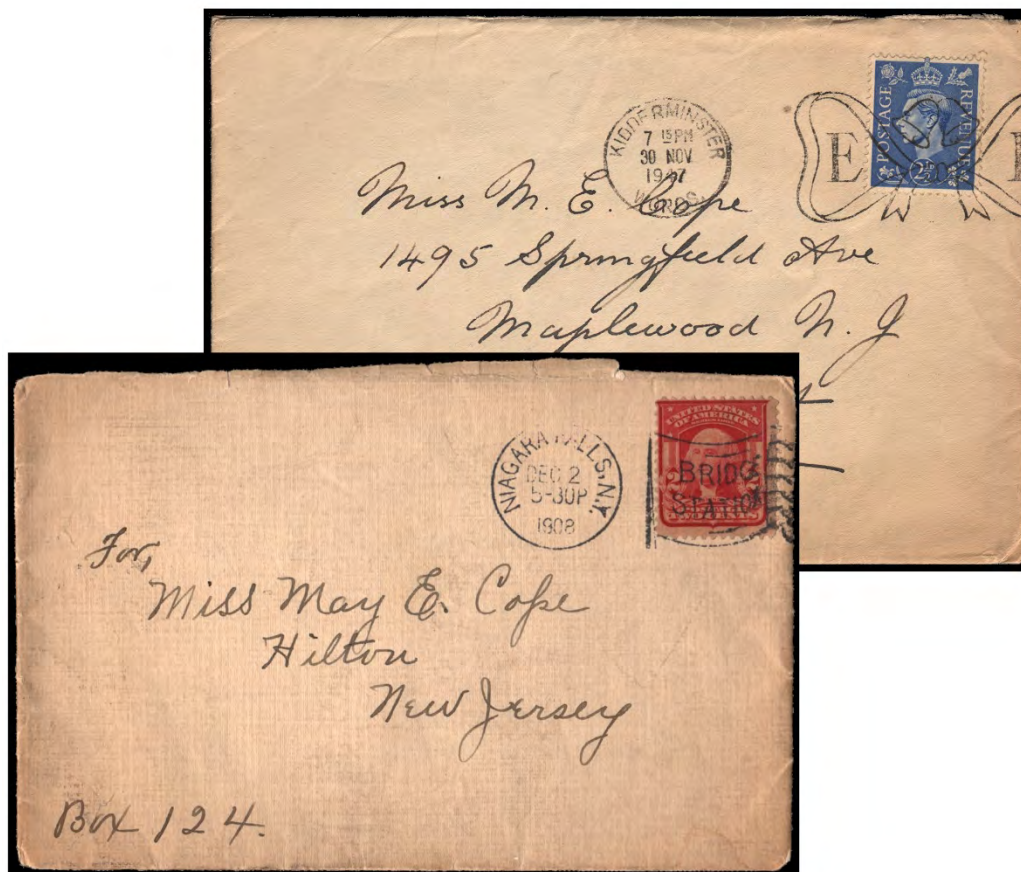 KIDDERMINSTER
7 15 PM
30 NOV
1947
WORCS.
POSTAGE
REVENUE
E
Miss M. E. Cope
1495 Springfield Ave
Maplewood N. J
NIAGARA FALLS, N.Y.
DEC 2
5-30P
1908
UNITED STATES
OF AMERICA
BRIDGE
STATION
For,
Miss May E. Cope
Hilton
New Jersey
Box 124.